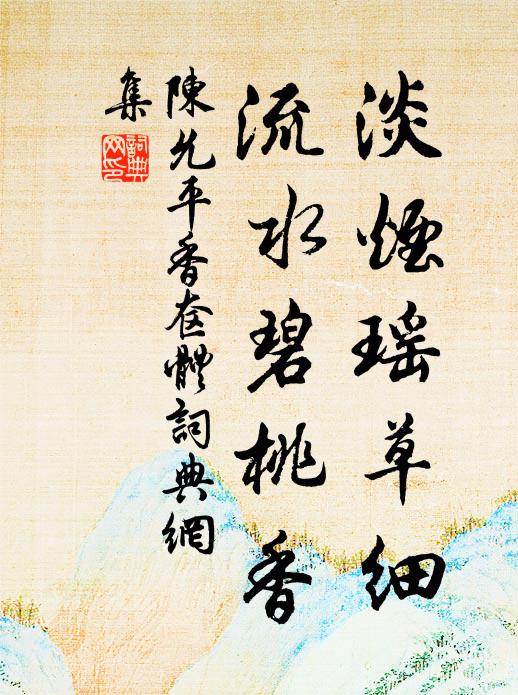 淡煙瑶草細
流水碧桃香
陳允平香奩體詞典網
集
詞典網印